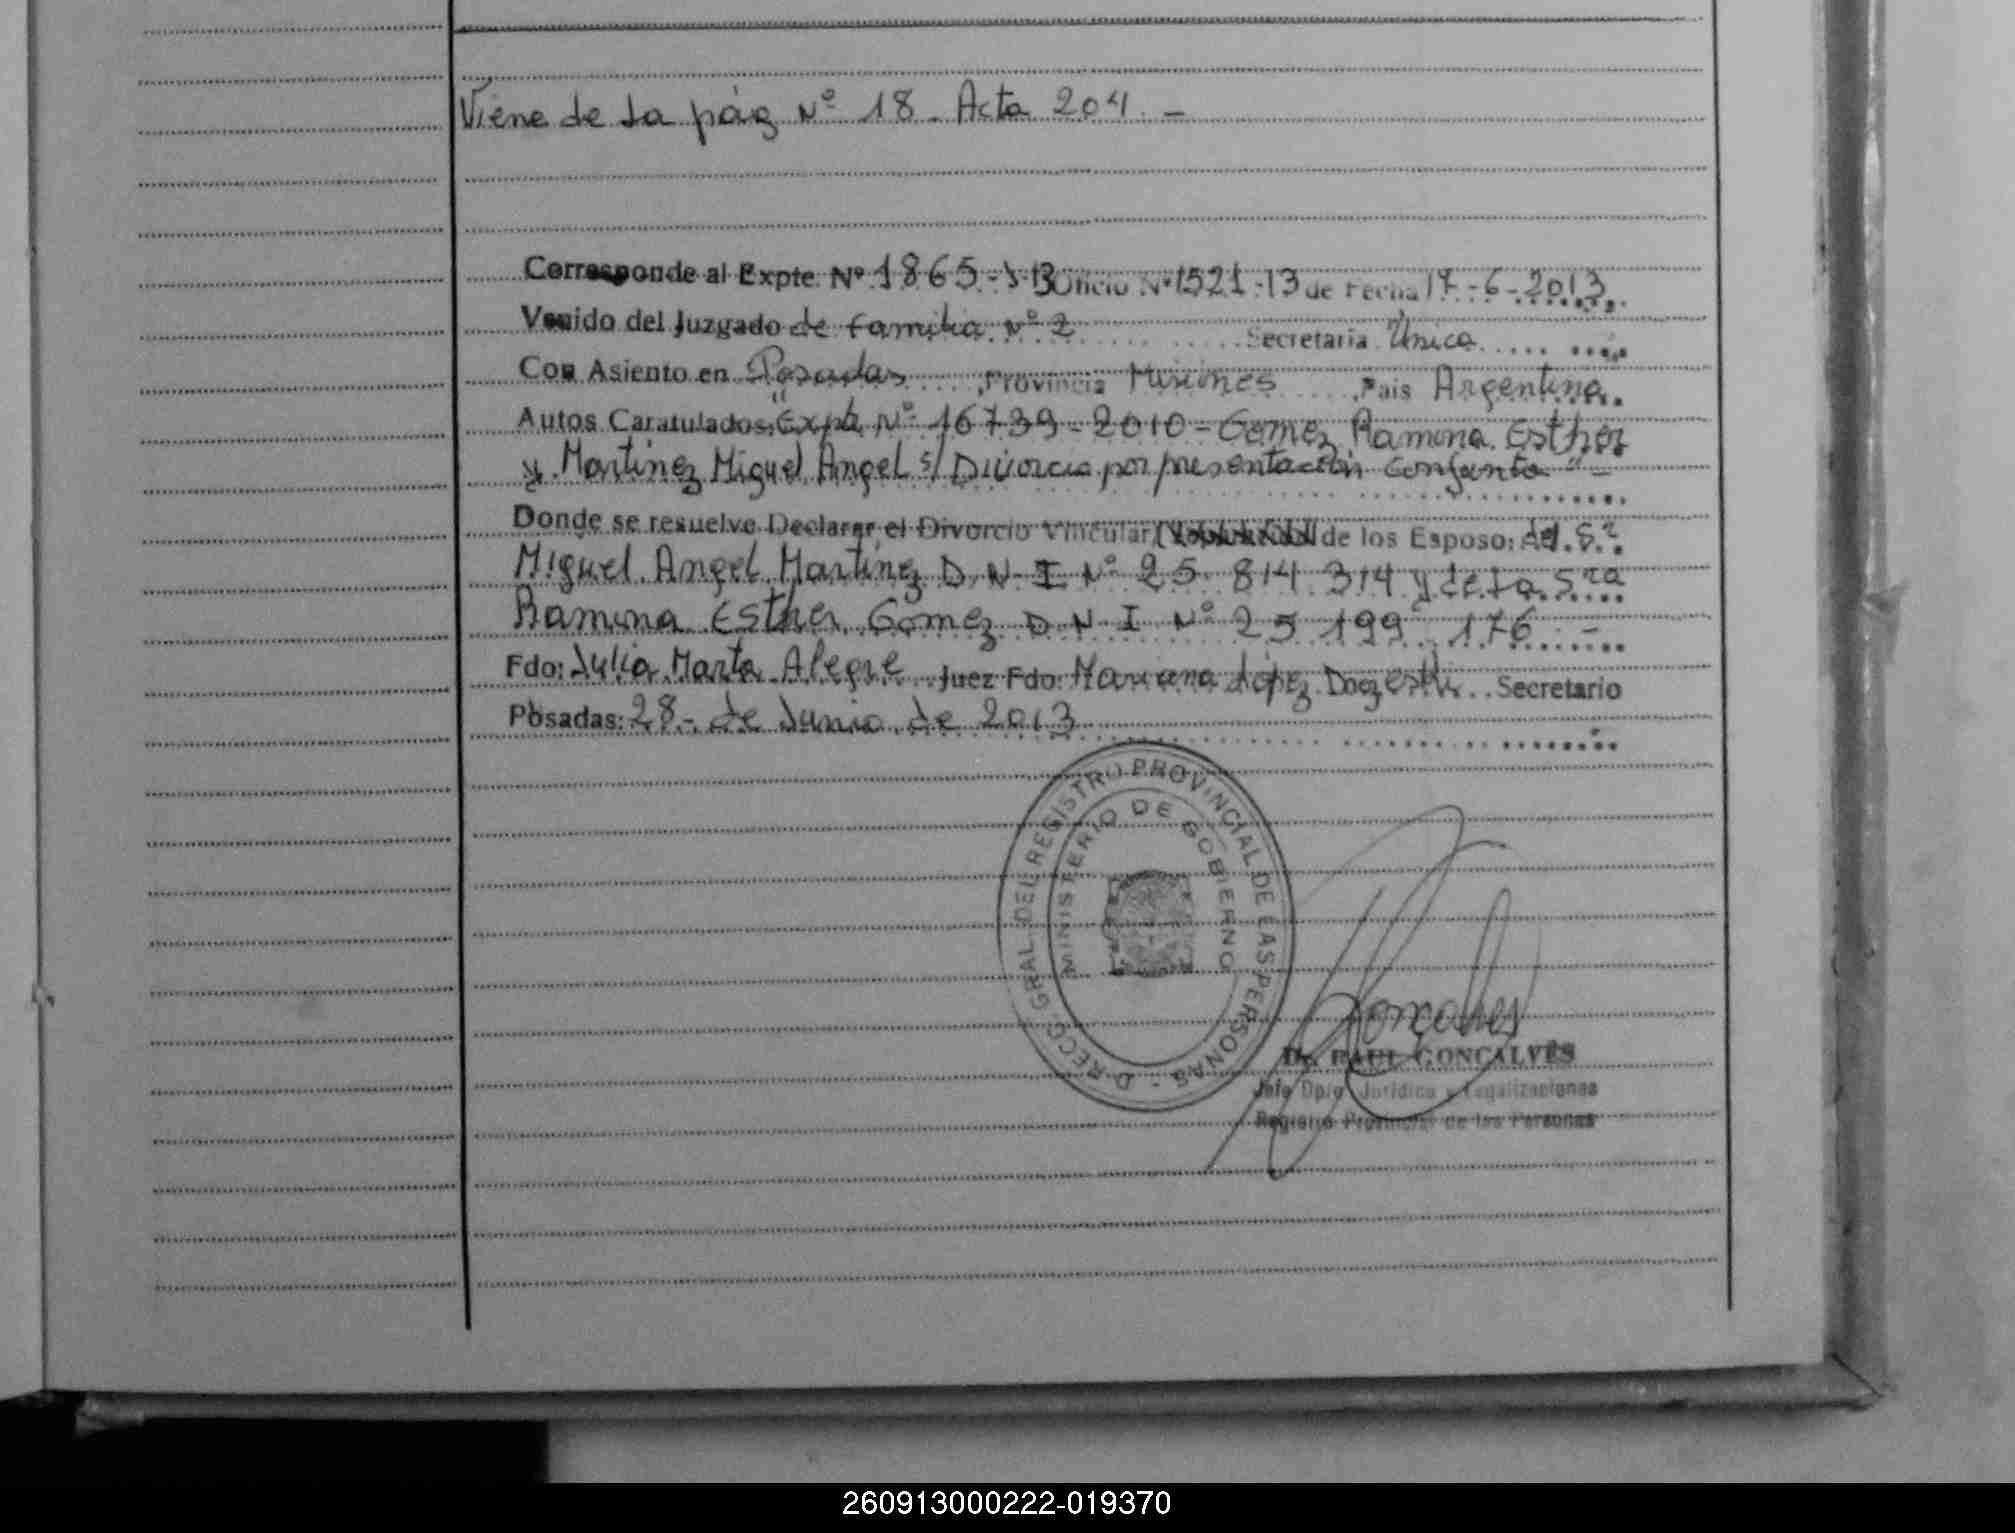 Viene de la pág Nº 18. Acta 204. -
Corresponde al Expte. Nº 1865-J-13 Oficio Nº 1521-13 de Fecha 17-6-2013
Venido del Juzgado de Familia Nº 2 Secretaria Única
Con Asiento en Posadas, Provincia Misiones, Pais Argentina.
Autos Caratulados: "Expte Nº 16739-2010-Gomez Ramona Esther
y Martinez Miguel Angel s/ Divorcio por presentación Conjunta" -
Donde se resuelve Declarar el Divorcio Vincular de los Esposo: del Sr.
Miguel Angel Martinez D.N.I Nº 25.814.314 y de la Sra
Ramona Esther Gomez D N I Nº 25 199 176. -
Fdo: Julia Marta Alegre Juez Fdo: Mariana López Secretario
Posadas: 28.- de Junio de 2013
DIRECC. GRAL. DEL REGISTRO PROVINCIAL DE LAS PERSONAS -
MINISTERIO DE GOBIERNO
Goncalves
Dr. RAUL GONCALVÊS
Jefe Dpto. Jurídico y Legalizaciones
Registro Provincial de las Personas
260913000222-019370